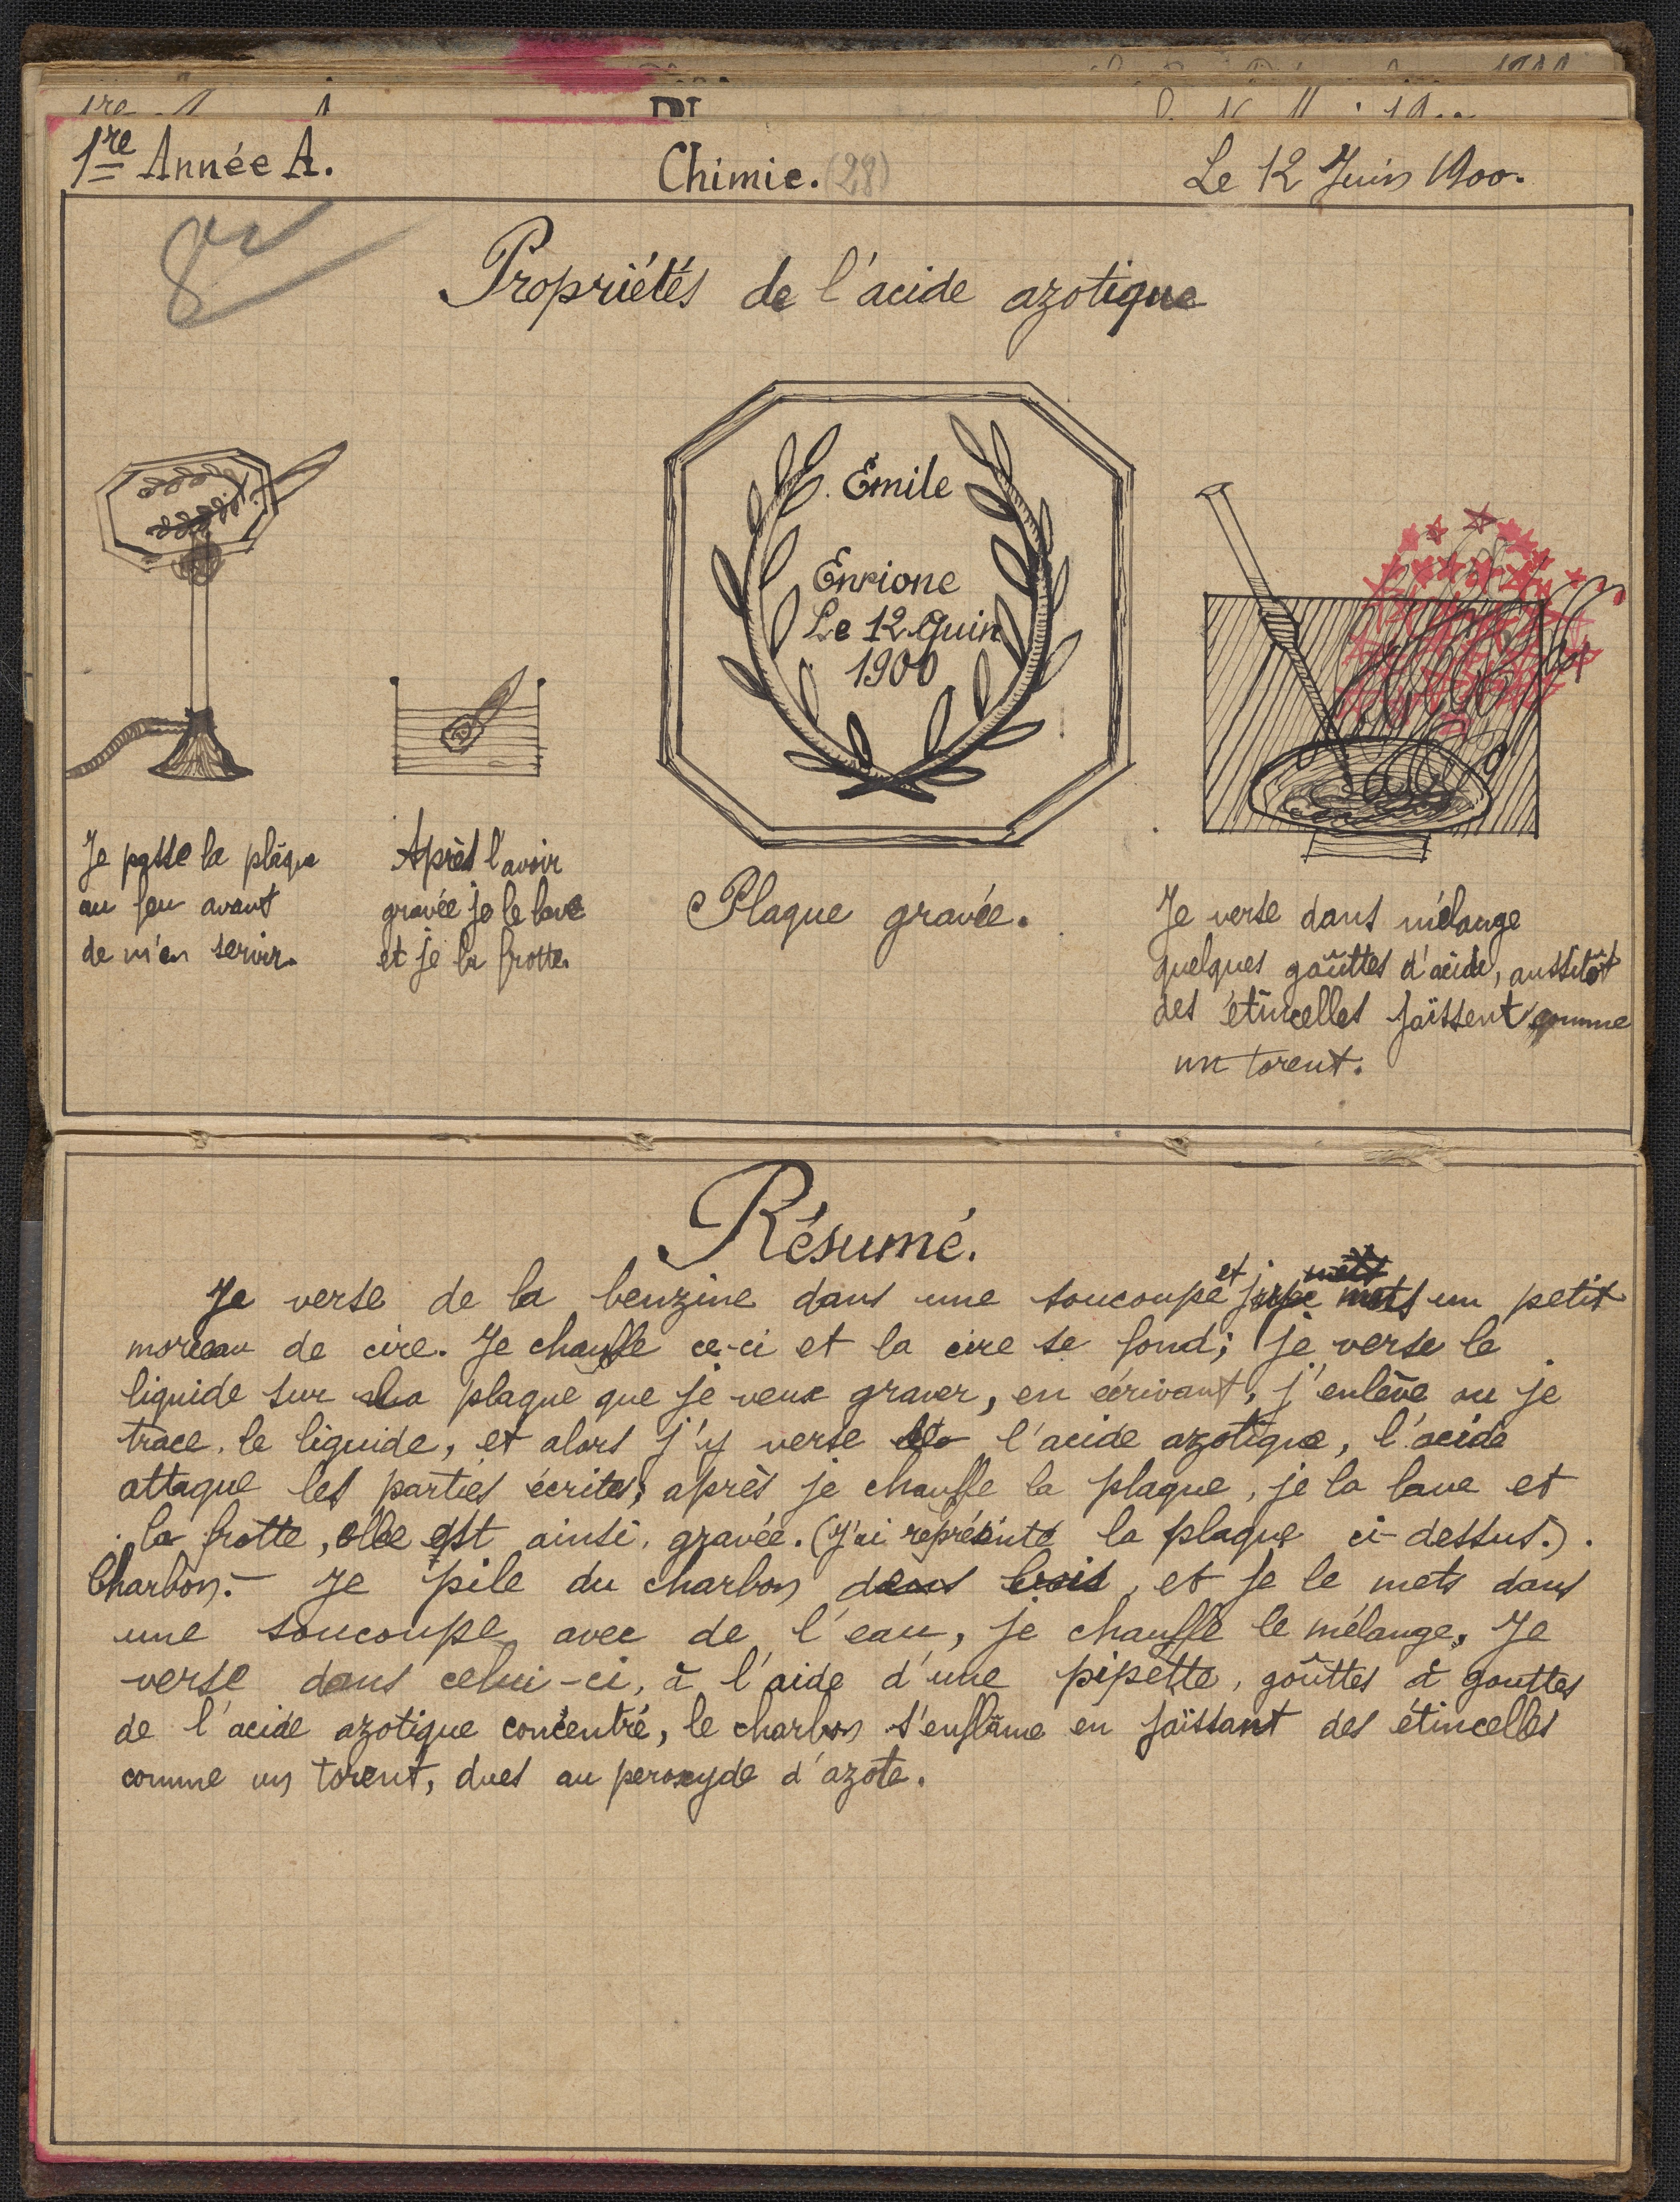 1re Année A.
Chimie. (28)
Le 12 Juin 1900.
8
Propriétés de l'acide azotique
Émile
Enrione
Le 12 Juin
1900
Je passe la plaque
au feu avant
de m'en servir.
Après l'avoir
gravée je le lave
et je la frotte.
Plaque gravée.
Je verse dans mélange
quelques goûttes d'acide, aussitôt
des étincelles jaïssent comme
un torent.
Résumé.
Je verse de la benzine dans une soucoupe et je mets un petit
morceau de cire. Je chauffe ce-ci et la cire se fond; je verse le
liquide sur la plaque que je veux graver, en écrivant, j'enlève ou je
trace le liquide, et alors j'y verse l'acide azotique, l'acide
attaque les parties écrites, après je chauffe la plaque, je la lave et
la frotte, elle est ainsi gravée. (J'ai représenté la plaque ci-dessus.).
Charbon.- Je pile du charbon dans bois, et je le mets dans
une soucoupe avec de l'eau, je chauffe le mélange. Je
verse dans celui-ci, à l'aide d'une pipette, goûttes à gouttes
de l'acide azotique concentré, le charbon s'enflâme en jaïssant des étincelles
comme un torent, dues au peroxyde d'azote.